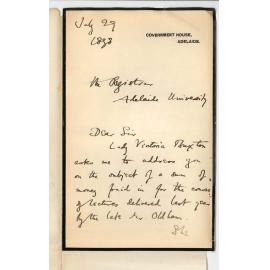 July 29
1898
GOVERNMENT HOUSE,
ADELAIDE.
The Registrar
Adelaide University
Dear Sir
Lady Victoria Buxton
asks me to address you
on the subject of a sum of
money paid in for the course
of lectures delivered last year
by the late Mr Oldham.
She